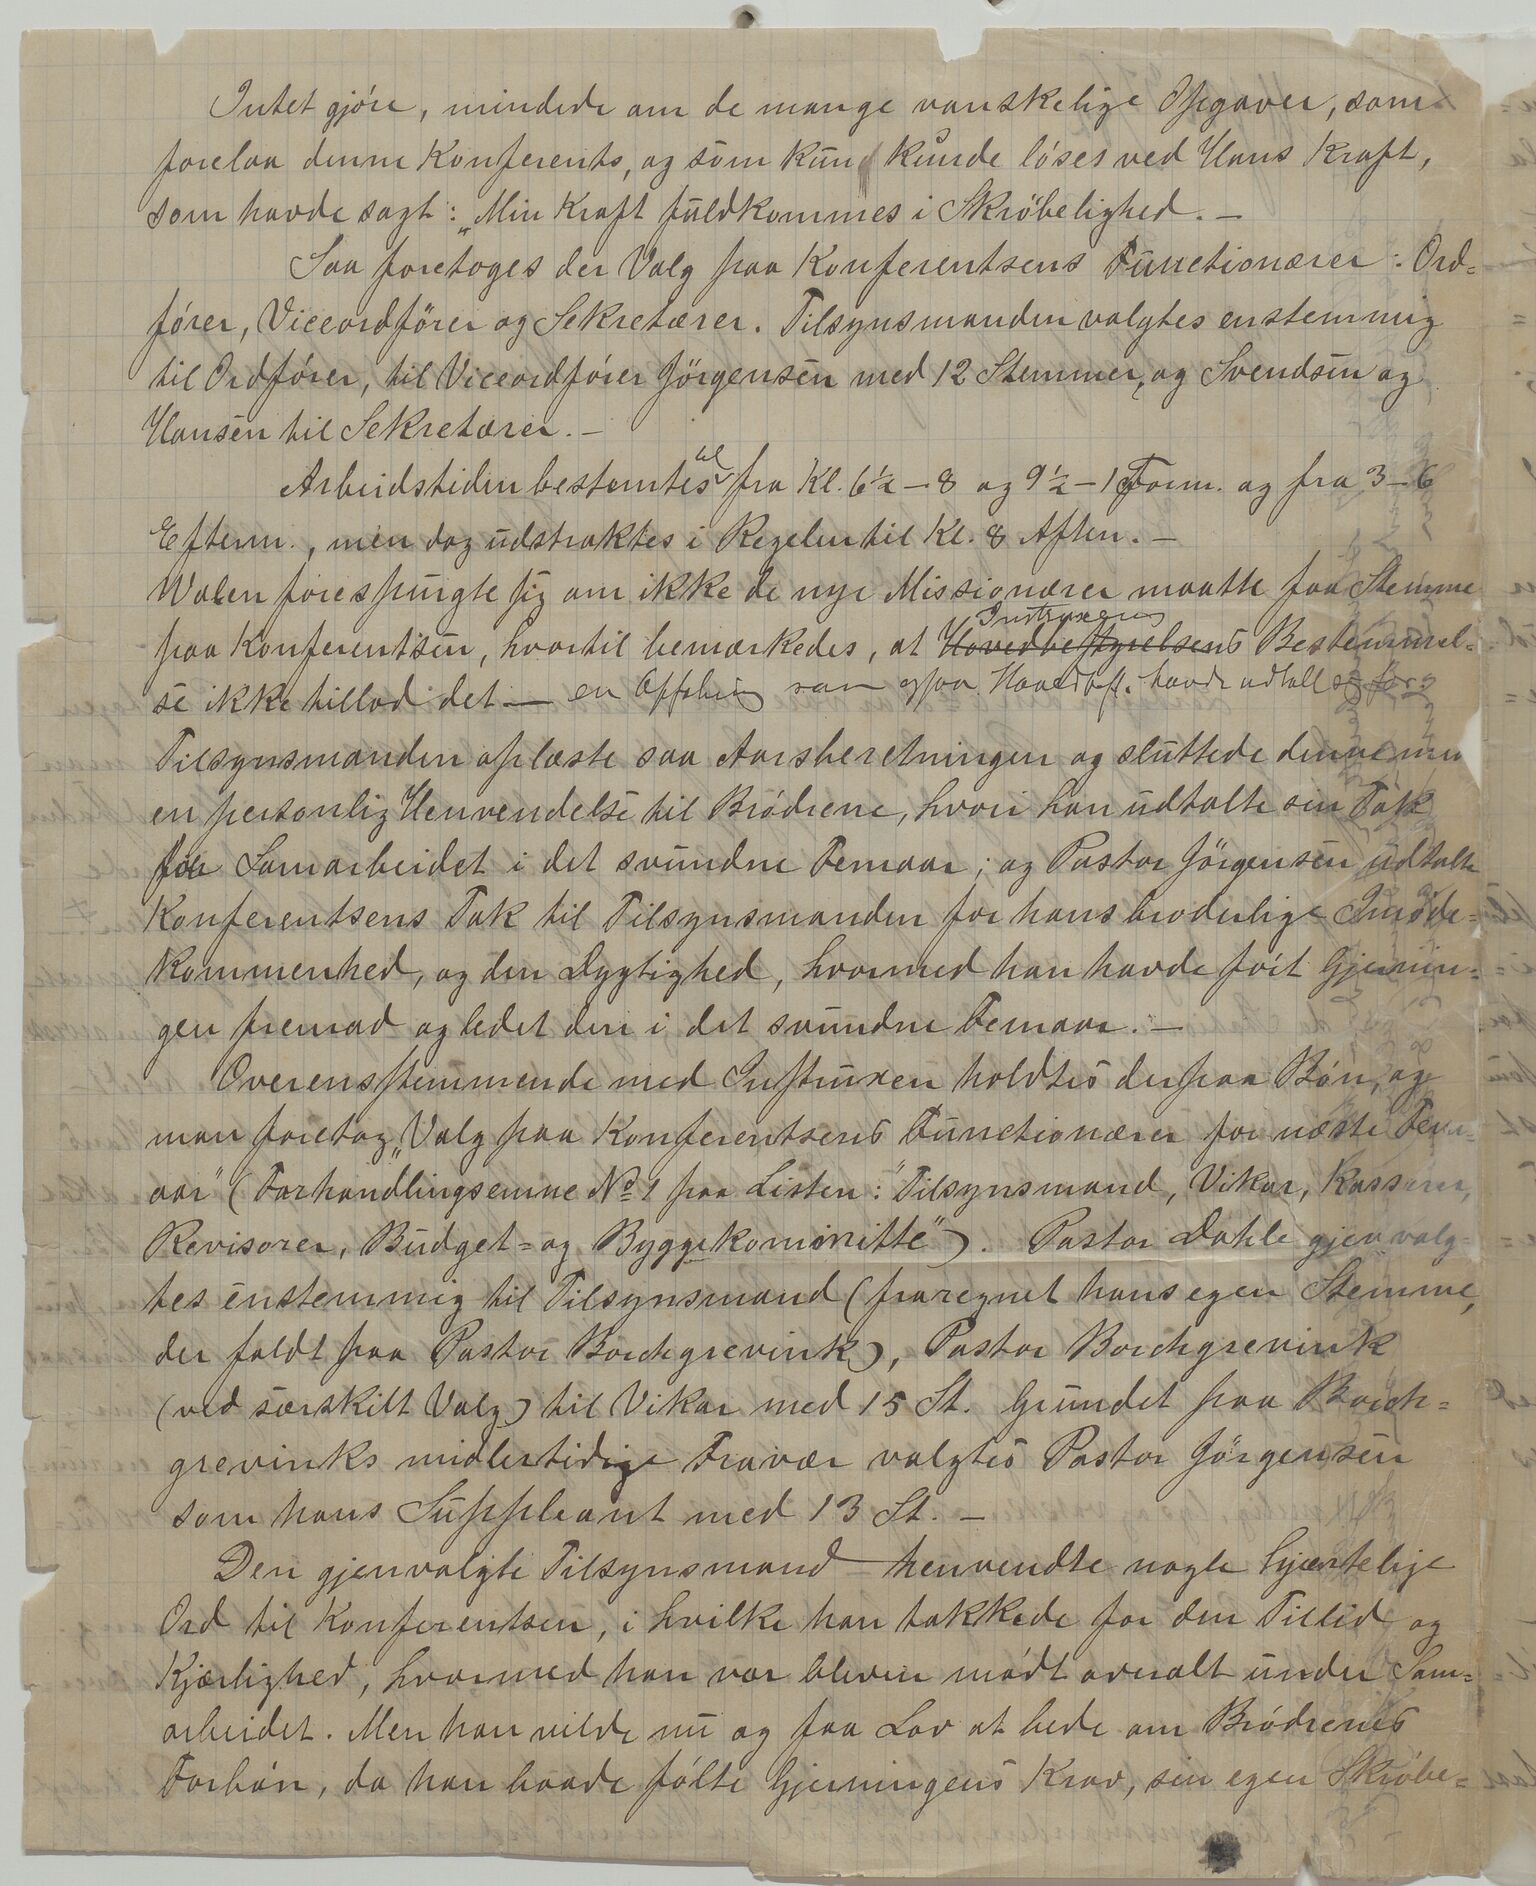 Intet gjöre, mindede om de mange vanskelige Opgaver, som
forelaa denne Konferents, og som kun kunde löses ved Hans Kraft,
som havde sagt: „Min Kraft fuldkommes i Skröbelighed. —
Saa foretoges der Valg paa Konferentsens Functionærer: Ord=
förer, Viceordförer og Sekretærer. Tilsynsmanden valgtes enstemmig
til Ordförer, til Viceordförer Jörgensen med 12 Stemmer, og Svendsen og
Hansen til Sekretærer. —
Arbeidstiden bestemtes til fra Kl. 6½ – 8 og 9½ – 1 Form. og fra 3 – 6
Efterm., men dog udstraktes i Regelen til Kl. 8 Aften. —
Walen forespurgte sig om ikke de nye Missionærer maatte faa Stemme
paa Konferentsen, hvortil bemærkedes, at Instruxens
Hovedbestyrelsens Bestemmel=
se ikke tillod det — en som ogsaa havde udtalt sig for
Tilsynsmanden oplæste saa Aarsberetningen og sluttede denne med
en personlig Henvendelse til Brödrene, hvori han udtalte sin Tak
for Samarbeidet i det svundne Femaar; og Pastor Jörgensen udtalte
Konferentsens Tak til Tilsynsmanden for hans broderlige Imöde=
kommenhed, og den Dygtighed, hvormed han havde fört Gjernin=
gen fremad og ledet den i det svundne Femaar. —
Overensstemmende med Instruxen holdtes derpaa Bön, og
man foretog „Valg paa Konferentsens Functionærer for næste Fem=
aar" (Forhandlingsemne No 1 paa Listen: "Tilsynsmand, Vikar, Kasserer,
Revisorer, Budget= og Byggekommitte"). Pastor Dahle gjenvalg=
tes enstemmig til Tilsynsmand (fraregnet hans egen Stemme,
der faldt paa Pastor Borchgrevink), Pastor Borchgrevink
(ved særskilt Valg) til Vikar med 15 St. Grundet paa Borch=
grevinks midlertidige Fravær valgtes Pastor Jörgensen
som hans Suppleant med 13 St. —
Den gjenvalgte Tilsynsmand henvendte nogle hjertelige
Ord til Konferentsen, i hvilke han takkede for den Tillid og
Kjærlighed, hvormed han var bleven mödt overalt under Sam=
arbeidet. Men han vilde nu og faa Lov at bede om Brödrenes
Forbön, da han baade fölte Gjerningens Krav, sin egen Skröbe=